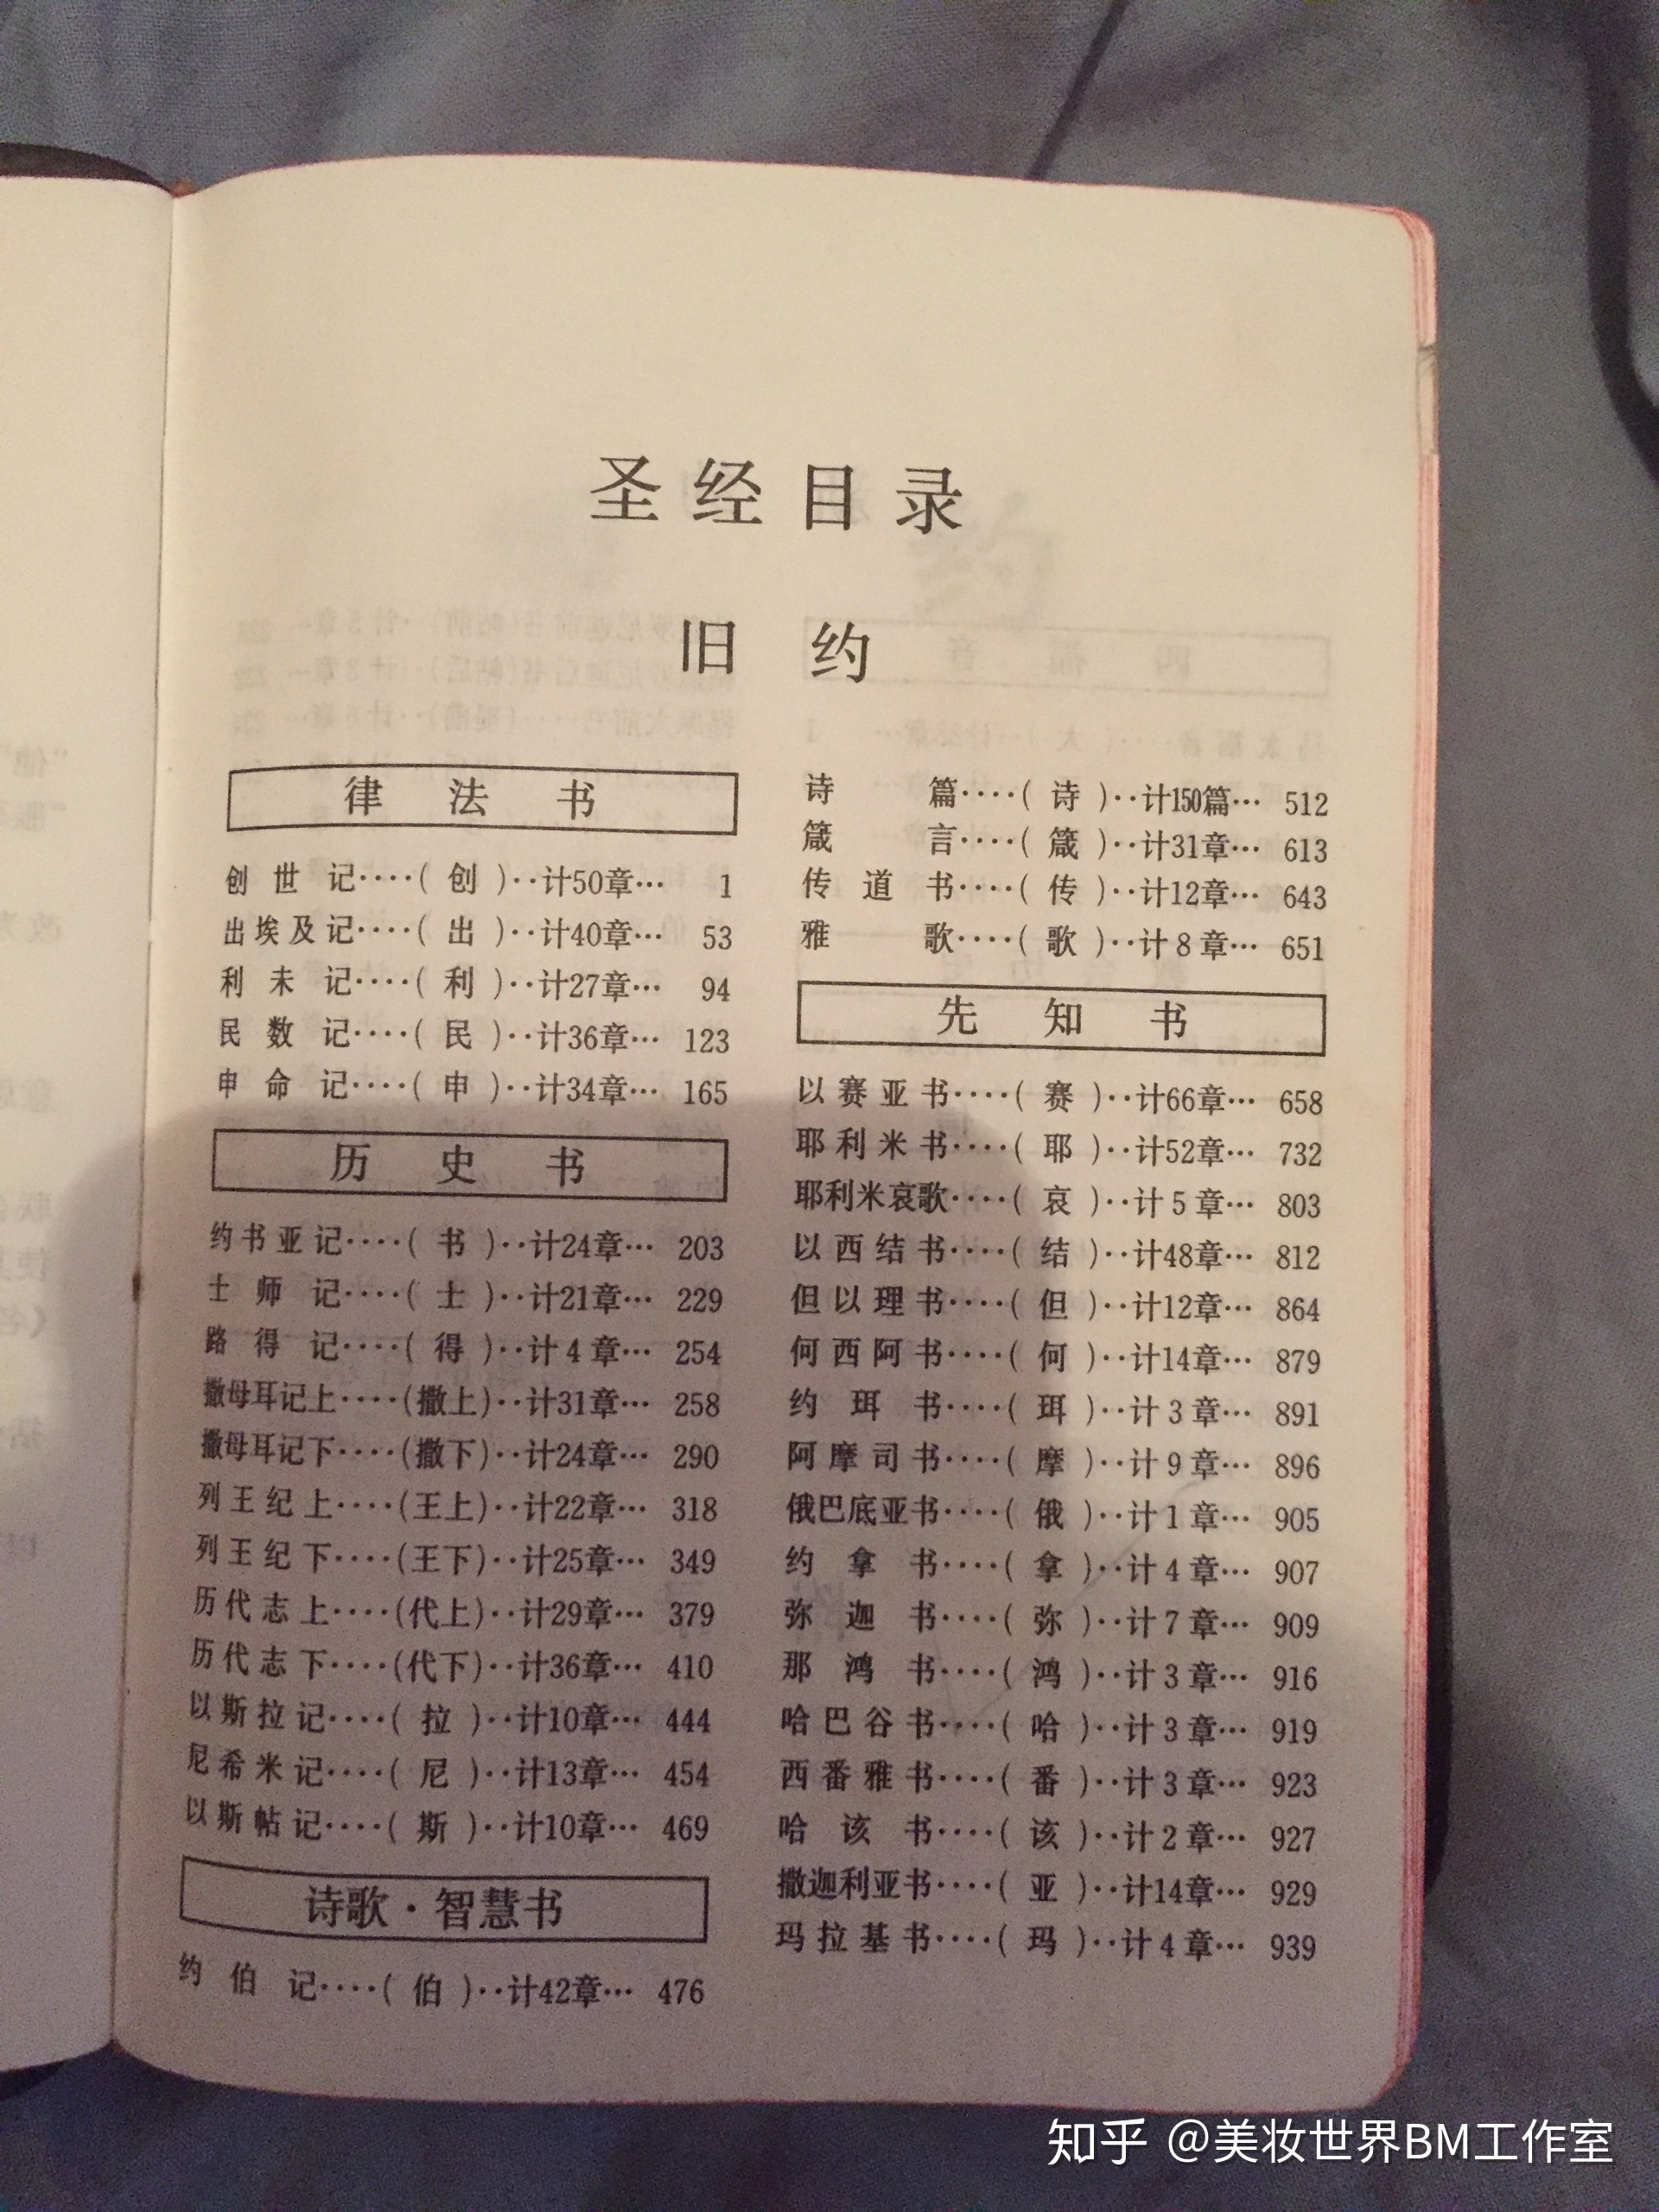 圣经目录
旧约
律法书
创世记····(创)··计50章··· 1
出埃及记····(出)··计40章··· 53
利未记····(利)··计27章··· 94
民数记····(民)··计36章··· 123
申命记····(申)··计34章··· 165
历史书
约书亚记····(书)··计24章··· 203
士师记····(士)··计21章··· 229
路得记····(得)··计4章··· 254
撒母耳记上····(撒上)··计31章··· 258
撒母耳记下····(撒下)··计24章··· 290
列王纪上····(王上)··计22章··· 318
列王纪下····(王下)··计25章··· 349
历代志上····(代上)··计29章··· 379
历代志下····(代下)··计36章··· 410
以斯拉记····(拉)··计10章··· 444
尼希米记····(尼)··计13章··· 454
以斯帖记····(斯)··计10章··· 469
诗歌·智慧书
约伯记····(伯)··计42章··· 476
诗篇····(诗)··计150篇··· 512
箴言····(箴)··计31章··· 613
传道书····(传)··计12章··· 643
雅歌····(歌)··计8章··· 651
先知书
以赛亚书····(赛)··计66章··· 658
耶利米书····(耶)··计52章··· 732
耶利米哀歌····(哀)··计5章··· 803
以西结书····(结)··计48章··· 812
但以理书····(但)··计12章··· 864
何西阿书····(何)··计14章··· 879
约珥书····(珥)··计3章··· 891
阿摩司书····(摩)··计9章··· 896
俄巴底亚书····(俄)··计1章··· 905
约拿书····(拿)··计4章··· 907
弥迦书····(弥)··计7章··· 909
那鸿书····(鸿)··计3章··· 916
哈巴谷书····(哈)··计3章··· 919
西番雅书····(番)··计3章··· 923
哈该书····(该)··计2章··· 927
撒迦利亚书····(亚)··计14章··· 929
玛拉基书····(玛)··计4章··· 939
知乎 @美妆世界BM工作室